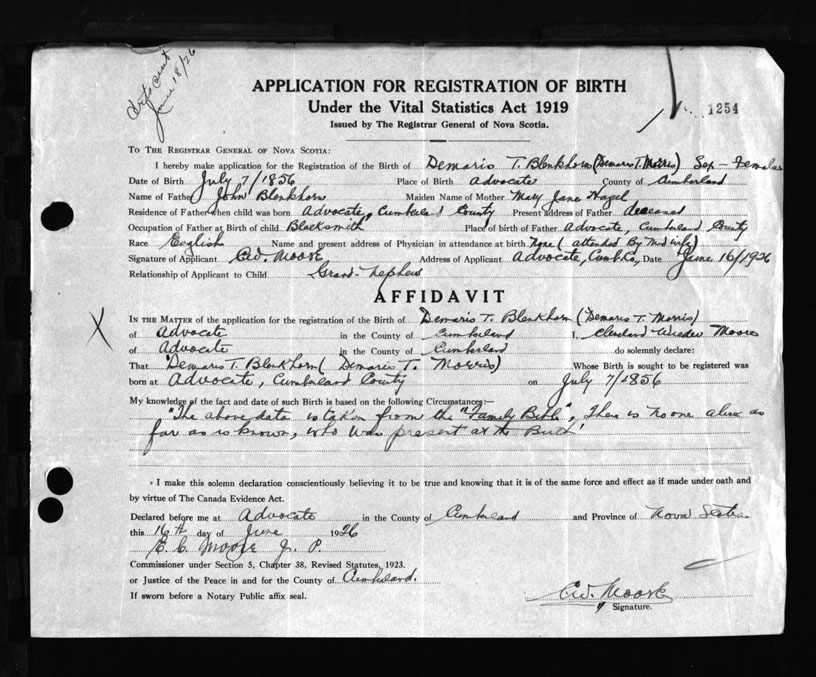 June 18/26
APPLICATION FOR REGISTRATION OF BIRTH
Under the Vital Statistics Act 1919
Issued by The Registrar General of Nova Scotia.
1254
TO THE REGISTRAR GENERAL OF NOVA SCOTIA:
I hereby make application for the Registration of the Birth of Demaris T. Blenkhorn (Demaris T. Morris) Sex - Female
Date of Birth July 7/1856 Place of Birth Advocate County of Cumberland
Name of Father John Blenkhorn Maiden Name of Mother Mary Jane
Residence of Father when child was born Advocate, Cumberland County Present address of Father deceased
Occupation of Father at Birth of child Blacksmith Place of birth of Father Advocate, Cumberland County
Race English Name and present address of Physician in attendance at birth None (attended By Midwife)
Signature of Applicant C.W. Moore Address of Applicant Advocate, Cumb. Co., Date June 16/1926
Relationship of Applicant to Child Grand-nephew
AFFIDAVIT
X
IN THE MATTER of the application for the registration of the Birth of Demaris T. Blenkhorn (Demaris T. Morris)
of Advocate in the County of Cumberland I, Moore
of Advocate in the County of Cumberland do solemnly declare:
That Demaris T. Blenkhorn (Demaris T. Morris) Whose Birth is sought to be registered was
born at Advocate, Cumberland County on July 7/1856
My knowledge of the fact and date of such Birth is based on the following Circumstances:—
"The above data is taken from the "Family Bible", There is no one alive as
far as is known, who was present at the Birth"
I make this solemn declaration conscientiously believing it to be true and knowing that it is of the same force and effect as if made under oath and
by virtue of The Canada Evidence Act.
Declared before me at Advocate in the County of Cumberland and Province of Nova Scotia
this 16th day of June 1926
E. C. Moore J. P.
Commissioner under Section 5, Chapter 38, Revised Statutes, 1923.
or Justice of the Peace in and for the County of Cumberland.
If sworn before a Notary Public affix seal.
C.W. Moore
Signature.